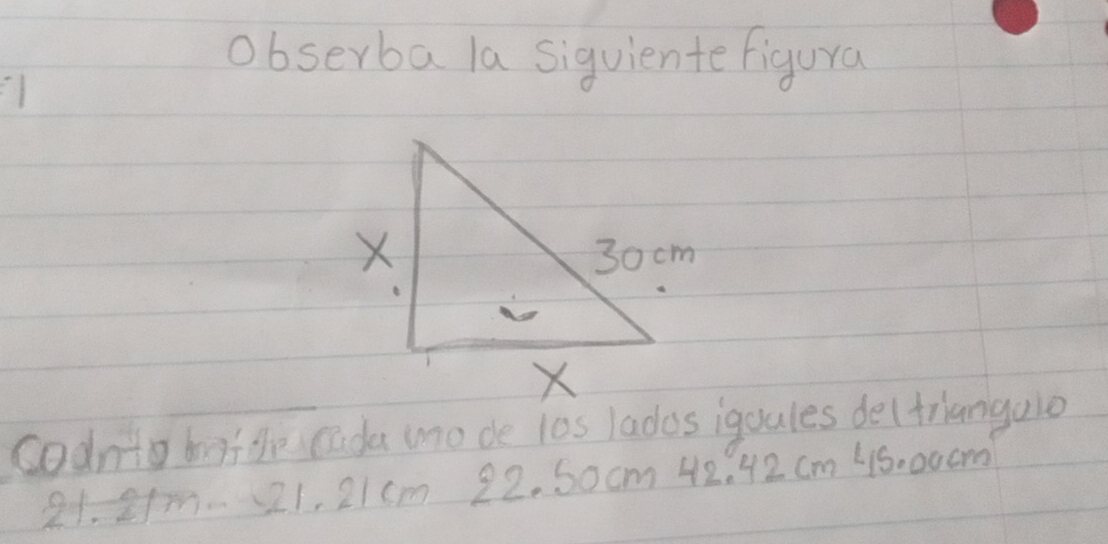 Observa la siguiente figura
X
30cm
X
cada uno de los lados iguales del triangulo
21.21m 21.21cm 22.50cm 42.42cm 45.00cm